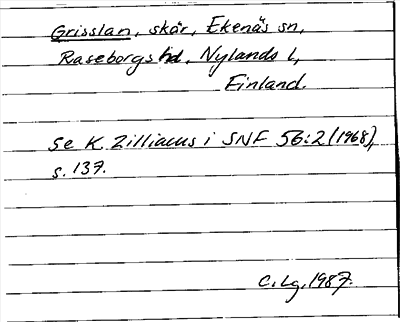 Grisslan, skär, Ekenäs sn,
Raseborgs hd, Nylands l,
Finland.
Se K. Zilliacus i SNF 56:2 (1968),
s. 137.
C. Lg, 1987.